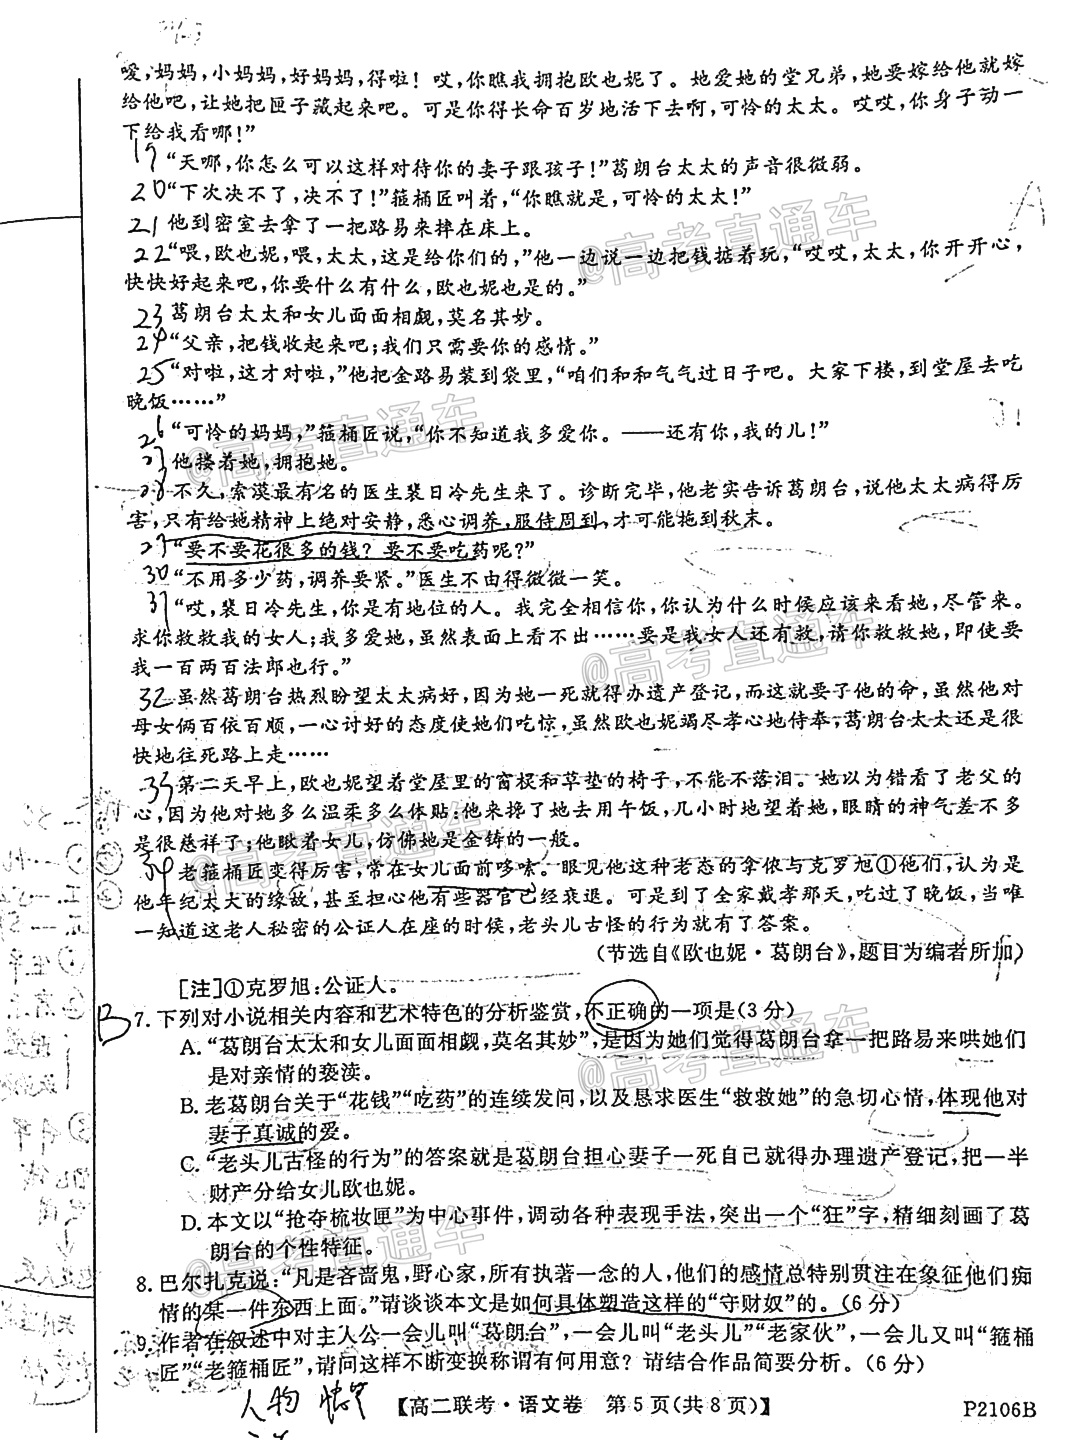 嗳,妈妈,小妈妈,好妈妈,得啦!哎,你瞧我拥抱欧也妮了。她爱她的堂兄弟,她要嫁给他就嫁
给他吧,让她把匣子藏起来吧。可是你得长命百岁地活下去啊,可怜的太太。哎哎,你身子动一
下给我看哪!”
19 “天哪,你怎么可以这样对待你的妻子跟孩子!”葛朗台太太的声音很微弱。
20 “下次决不了,决不了!”箍桶匠叫着,“你瞧就是,可怜的太太!”
21 他到密室去拿了一把路易来摔在床上。
22 “喂,欧也妮,喂,太太,这是给你们的,”他一边说一边把钱掂着玩,“哎哎,太太,你开开心,
快快好起来吧,你要什么有什么,欧也妮也是的。”
23 葛朗台太太和女儿面面相觑,莫名其妙。
24 “父亲,把钱收起来吧;我们只需要你的感情。”
25 “对啦,这才对啦,”他把金路易装到袋里,“咱们和和气气过日子吧。大家下楼,到堂屋去吃
晚饭……”
26 “可怜的妈妈,”箍桶匠说,“你不知道我多爱你。——还有你,我的儿!”
27 他搂着她,拥抱她。
28 不久,索漠最有名的医生裴日冷先生来了。诊断完毕,他老实告诉葛朗台,说他太太病得厉
害,只有给她精神上绝对安静,悉心调养,服侍周到,才可能拖到秋末。
29 “要不要花很多的钱?要不要吃药呢?”
30 “不用多少药,调养要紧。”医生不由得微微一笑。
31 “哎,裴日冷先生,你是有地位的人。我完全相信你,你认为什么时候应该来看她,尽管来。
求你救救我的女人;我多爱她,虽然表面上看不出……要是我女人还有救,请你救救她,即使要
我一百两百法郎也行。”
32 虽然葛朗台热烈盼望太太病好,因为她一死就得办遗产登记,而这就要了他的命,虽然他对
母女俩百依百顺,一心讨好的态度使她们吃惊,虽然欧也妮竭尽孝心地侍奉,葛朗台太太还是很
快地往死路上走……
33 第二天早上,欧也妮望着堂屋里的窗棂和草垫的椅子,不能不落泪。她以为错看了老父的
心,因为他对她多么温柔多么体贴:他来搀了她去用午饭,几小时地望着她,眼睛的神气差不多
是很慈祥了;他瞅着女儿,仿佛她是金铸的一般。
34 老箍桶匠变得厉害,常在女儿面前哆嗦。眼见他这种老态的拿侬与克罗旭①他们,认为是
他年纪太大的缘故,甚至担心他有些器官已经衰退。可是到了全家戴孝那天,吃过了晚饭,当唯
一知道这老人秘密的公证人在座的时候,老头儿古怪的行为就有了答案。
(节选自《欧也妮·葛朗台》,题目为编者所加)
[注]①克罗旭:公证人。
B 7.下列对小说相关内容和艺术特色的分析鉴赏,不正确的一项是(3分)
A.“葛朗台太太和女儿面面相觑,莫名其妙”,是因为她们觉得葛朗台拿一把路易来哄她们
是对亲情的亵渎。
B.老葛朗台关于“花钱”“吃药”的连续发问,以及恳求医生“救救她”的急切心情,体现他对
妻子真诚的爱。
C.“老头儿古怪的行为”的答案就是葛朗台担心妻子一死自己就得办理遗产登记,把一半
财产分给女儿欧也妮。
D.本文以“抢夺梳妆匣”为中心事件,调动各种表现手法,突出一个“狂”字,精细刻画了葛
朗台的个性特征。
8.巴尔扎克说:“凡是吝啬鬼,野心家,所有执著一念的人,他们的感情总特别贯注在象征他们痴
情的某一件东西上面。”请谈谈本文是如何具体塑造这样的“守财奴”的。(6分)
9.作者在叙述中对主人公一会儿叫“葛朗台”,一会儿叫“老头儿”“老家伙”,一会儿又叫“箍桶
匠”“老箍桶匠”,请问这样不断变换称谓有何用意?请结合作品简要分析。(6分)
人物
【高二联考·语文卷 第5页(共8页)】
P2106B
@高考直通车
@高考直通车
@高考直通车
@高考直通车
@高考直通车
@高考直通车